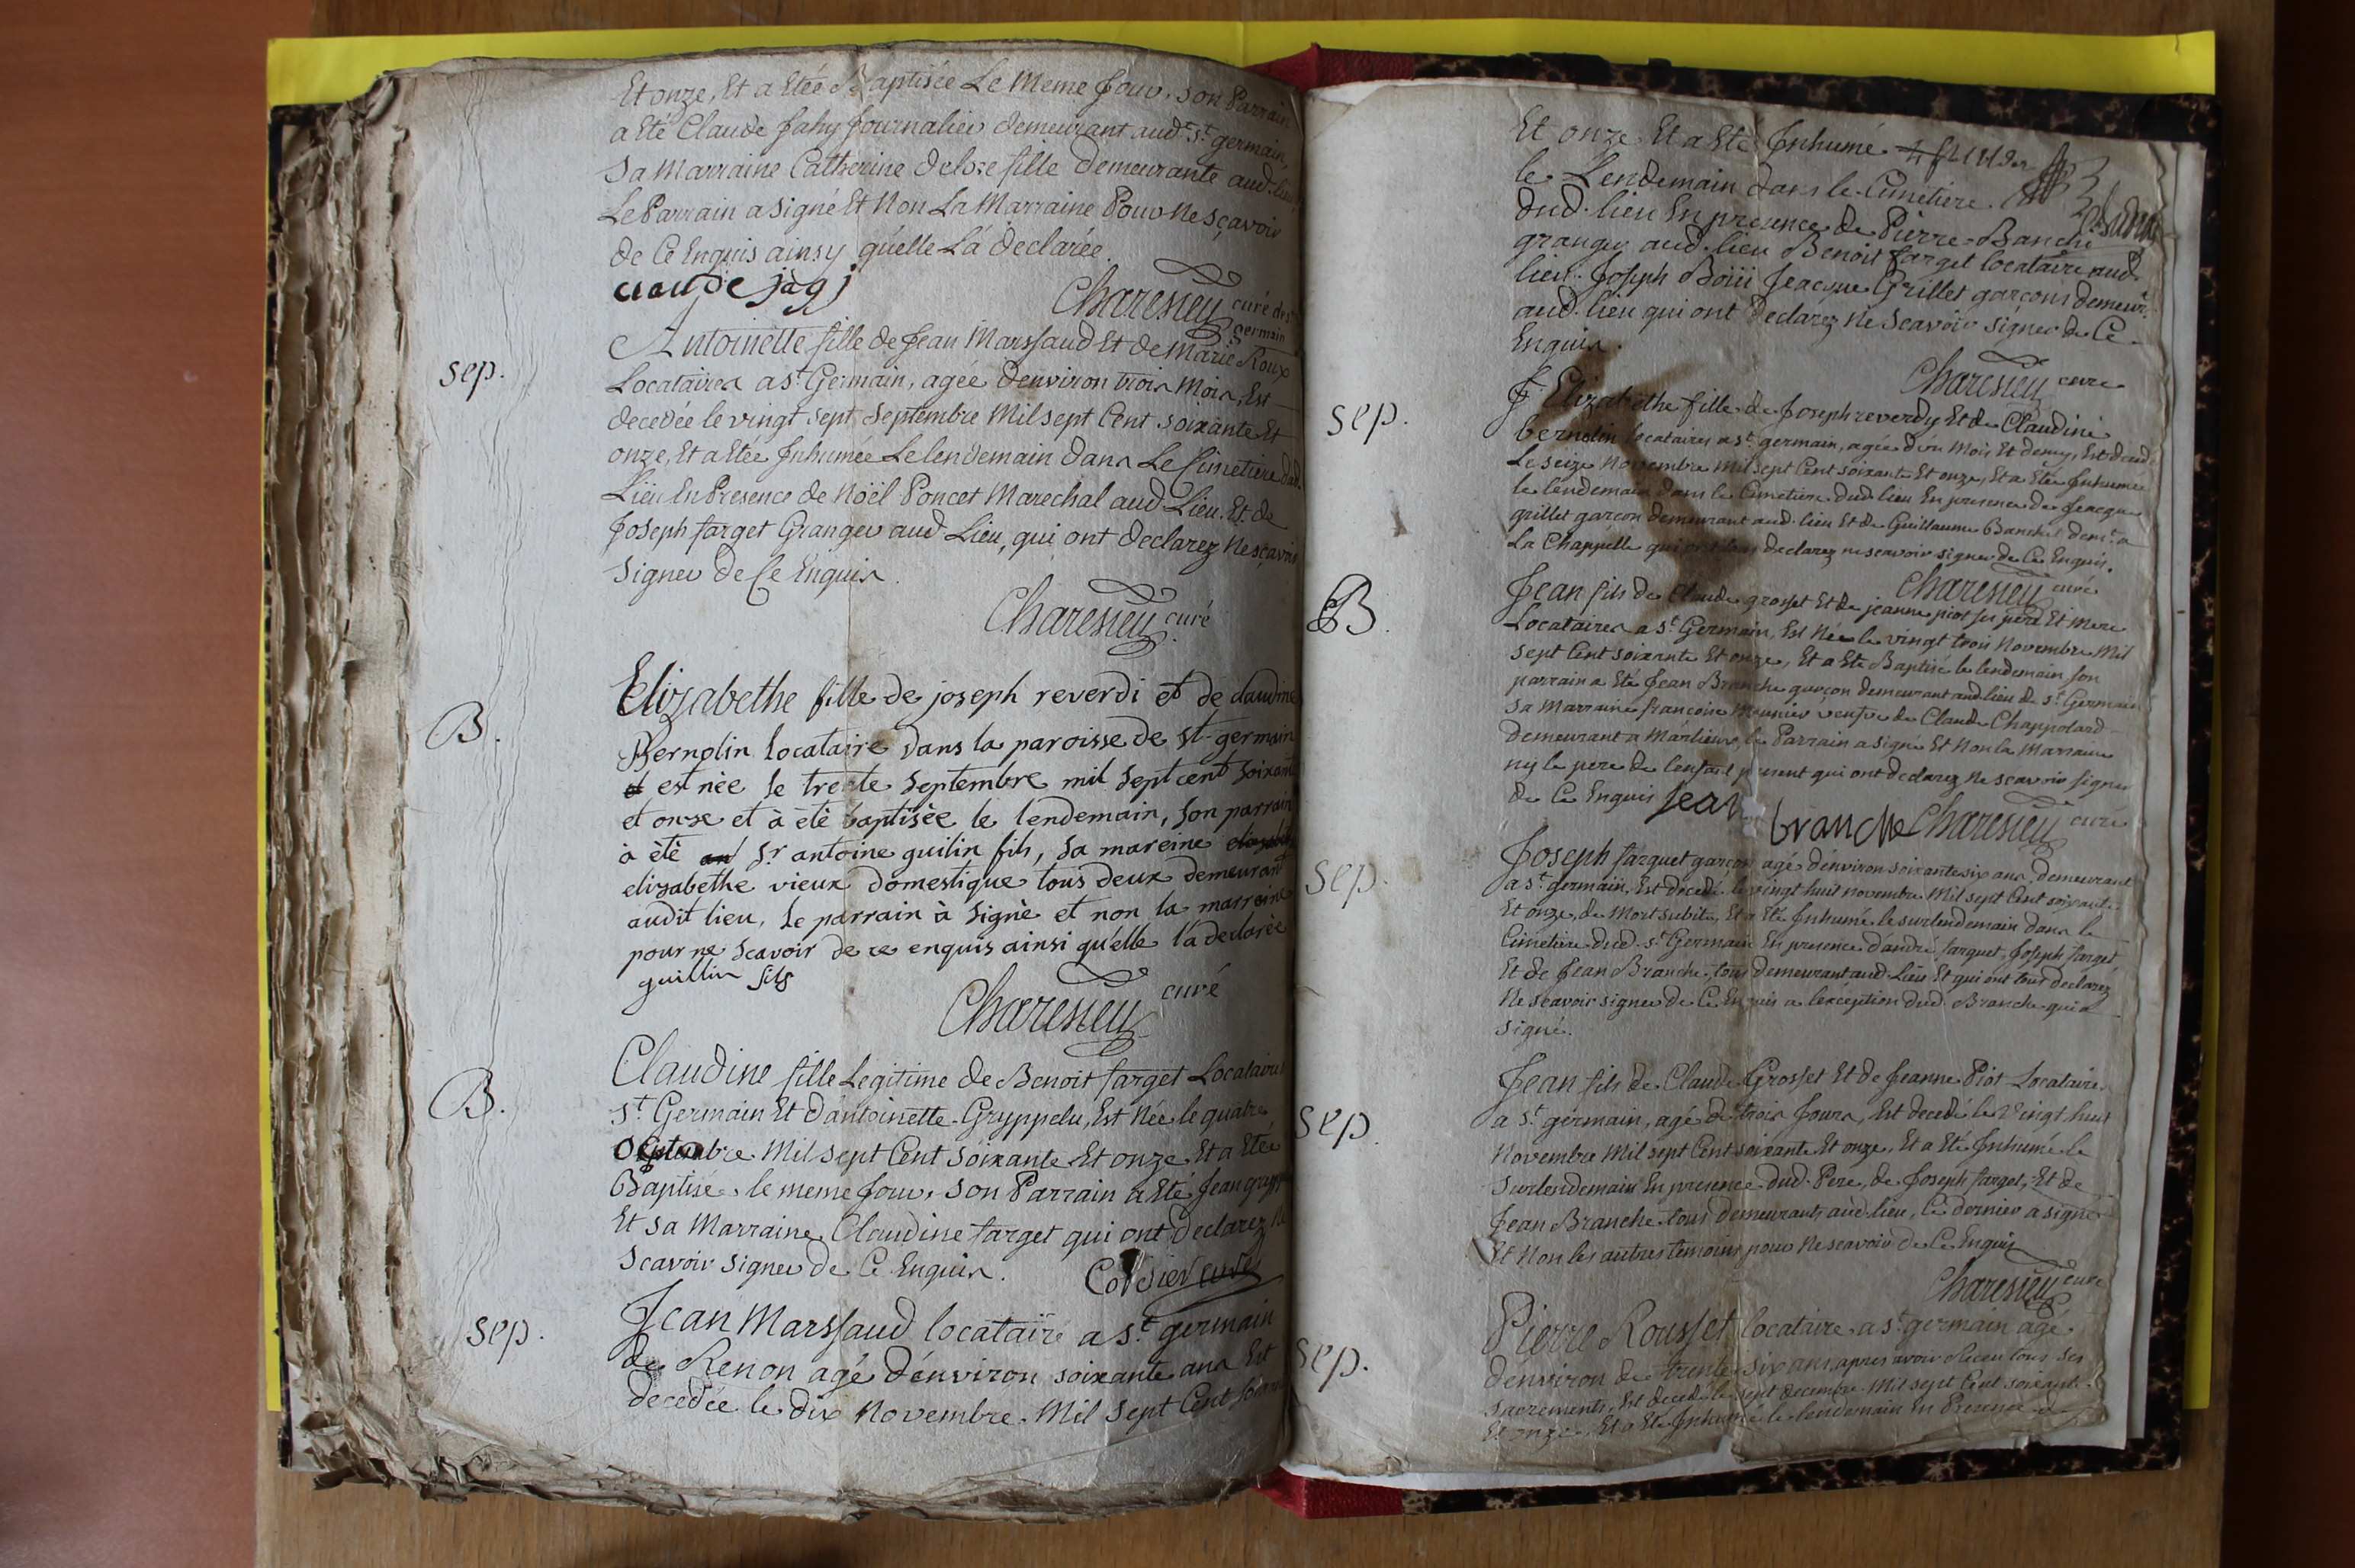 Et onze, Et a Etée Baptisée Le Meme Jour, son Parrain
a Eté Claude Jahy Journalier demeurant aud.t S.t germain,
Sa Marraine Catherine fille demeurante aud. lieu
Le Parrain a signé Et Non La Marraine Pour Ne Sçavoir
de Ce Enquis ainsy qu'elle L'a Declarée.
claude jagj
Charesieu curé de s.t
germain
Antoinette fille de Jean Marssaud Et de Marie Roux
sep.
Locataires a s.t Germain, agée d'environ trois Mois, Est
decedée le vingt sept Septembre Mil sept Cent soixante Et
onze, Et a Etée Inhumée Le lendemain dans Le Cimetiere dud.
Lieu En Presence de Noël Poncet Marechal aud. Lieu. Et de
Joseph farget Granger aud. Lieu, qui ont declarez Ne sçavoir
Signer de Ce Enquis.
Charesieu curé
Elizabethe fille de joseph reverdi et de claudine
B.
Bernolin locataire dans la paroisse de st germain
est nèe le trente septembre mil sept cent soixante
et onze et à étè baptisèe le lendemain, son parrain
à ètè s.r antoine guilin fils, sa mareine
elizabethe vieux domestique tous deux demeurant
audit lieu, le parrain à signè et non la marreine
pour ne scavoir de ce enquis ainsi qu'elle l'a declarèe
guillin fils
Charesieu curé
Claudine fille Legitime de Benoit farget Locataire
B.
S.t Germain Et d'antoinette Gryppelu, Est Née le quatre
Octobre Mil sept Cent soixante Et onze Et a Etée
Baptisée le meme Jour, son Parrain a Eté Jean
Et sa Marraine Claudine farget qui ont declarez Ne
Scavoir signer de Ce Enquis.
Cordier curé
Jean Marssaud locataire a s.t germain
sep.
de Renon agé d'environ soixante ans Est
decedée le dix Novembre Mil Sept Cent soixante
Et onze Et a Eté Inhumé
le Lendemain dans le Cimetiere
dud. lieu En presence de Pierre Banché
granger aud. lieu Benoit farget locataire aud.
lieu. Joseph Boüi Jeacque Grillet garçons demeur.t
aud. lieu qui ont declarez Ne Scavoir signer de Ce
Enquis.
Charesieu curé
Elizabethe fille de Joseph reverdy Et de Claudine
sep.
bernolin locataires a s.t germain, agée d'un Mois Et demy, Est deced.
Le seize Novembre Mil sept Cent soixante Et onze, Et a Etée Inhumée
le lendemain dans le Cimetiere dud. lieu En presence de Jeacque
grillet garçon demeurant aud. lieu Et de Guillaume Banchet dem.t a
La Chappelle qui ont declarez ne scavoir signer de Ce Enquis.
Charesieu curé
Jean fils de Claude grosset Et de jeanne piot ses père Et Mere
B.
Locataires a S.t Germain, Est Née le vingt trois Novembre Mil
Sept Cent soixante Et onze, Et a Eté Baptisé le lendemain son
parrain a Eté Jean Branche garçon demeurant aud. lieu de S.t Germain
Sa Marraine francoise Meunier veufve de Claude Chappolard
demeurant a Marlieux, le Parrain a signé Et Non la Marraine
ny le pere de l'enfant present qui ont declarez Ne scavoir signer
de Ce Enquis Jean branche Charesieu curé
Joseph farguet garçon agé d'environ soixante six ans, demeurant
sep.
a S.t germain, Est decedé le vingt huit novembre Mil sept Cent soixante
Et onze, de Mort subite, Et a Eté Inhumé le surlendemain dans le
Cimetiere dud. S.t Germain En presence d'andré farguet, Joseph farget
Et de Jean Branche, tous demeurant aud. Lieu Et qui ont tous declarez
Ne scavoir signer de Ce Enquis a l'exception dud. Branche qui a
signé.
Jean fils de Claude Grosset Et de Jeanne Piot Locataire
sep.
a S.t germain, agé de trois Jours, Est decedé le Vingt huit
Novembre Mil sept Cent soixante Et onze, Et a Eté Inhumé le
Surlendemain En presence dud. Pere, de Joseph farget, Et de
Jean Branche tous demeurants aud. lieu, Ce dernier a signé
Et Non les autres temoins pour Ne scavoir de Ce Enquis
Charesieu curé
Pierre Rousset locataire a S.t germain agé
sep.
d'environ de trente six ans, apres avoir Receu tous ses
sacrements, Est decedé le sept decembre Mil sept Cent soixante
Et onze, Et a Eté Inhumé le lendemain En Presence de